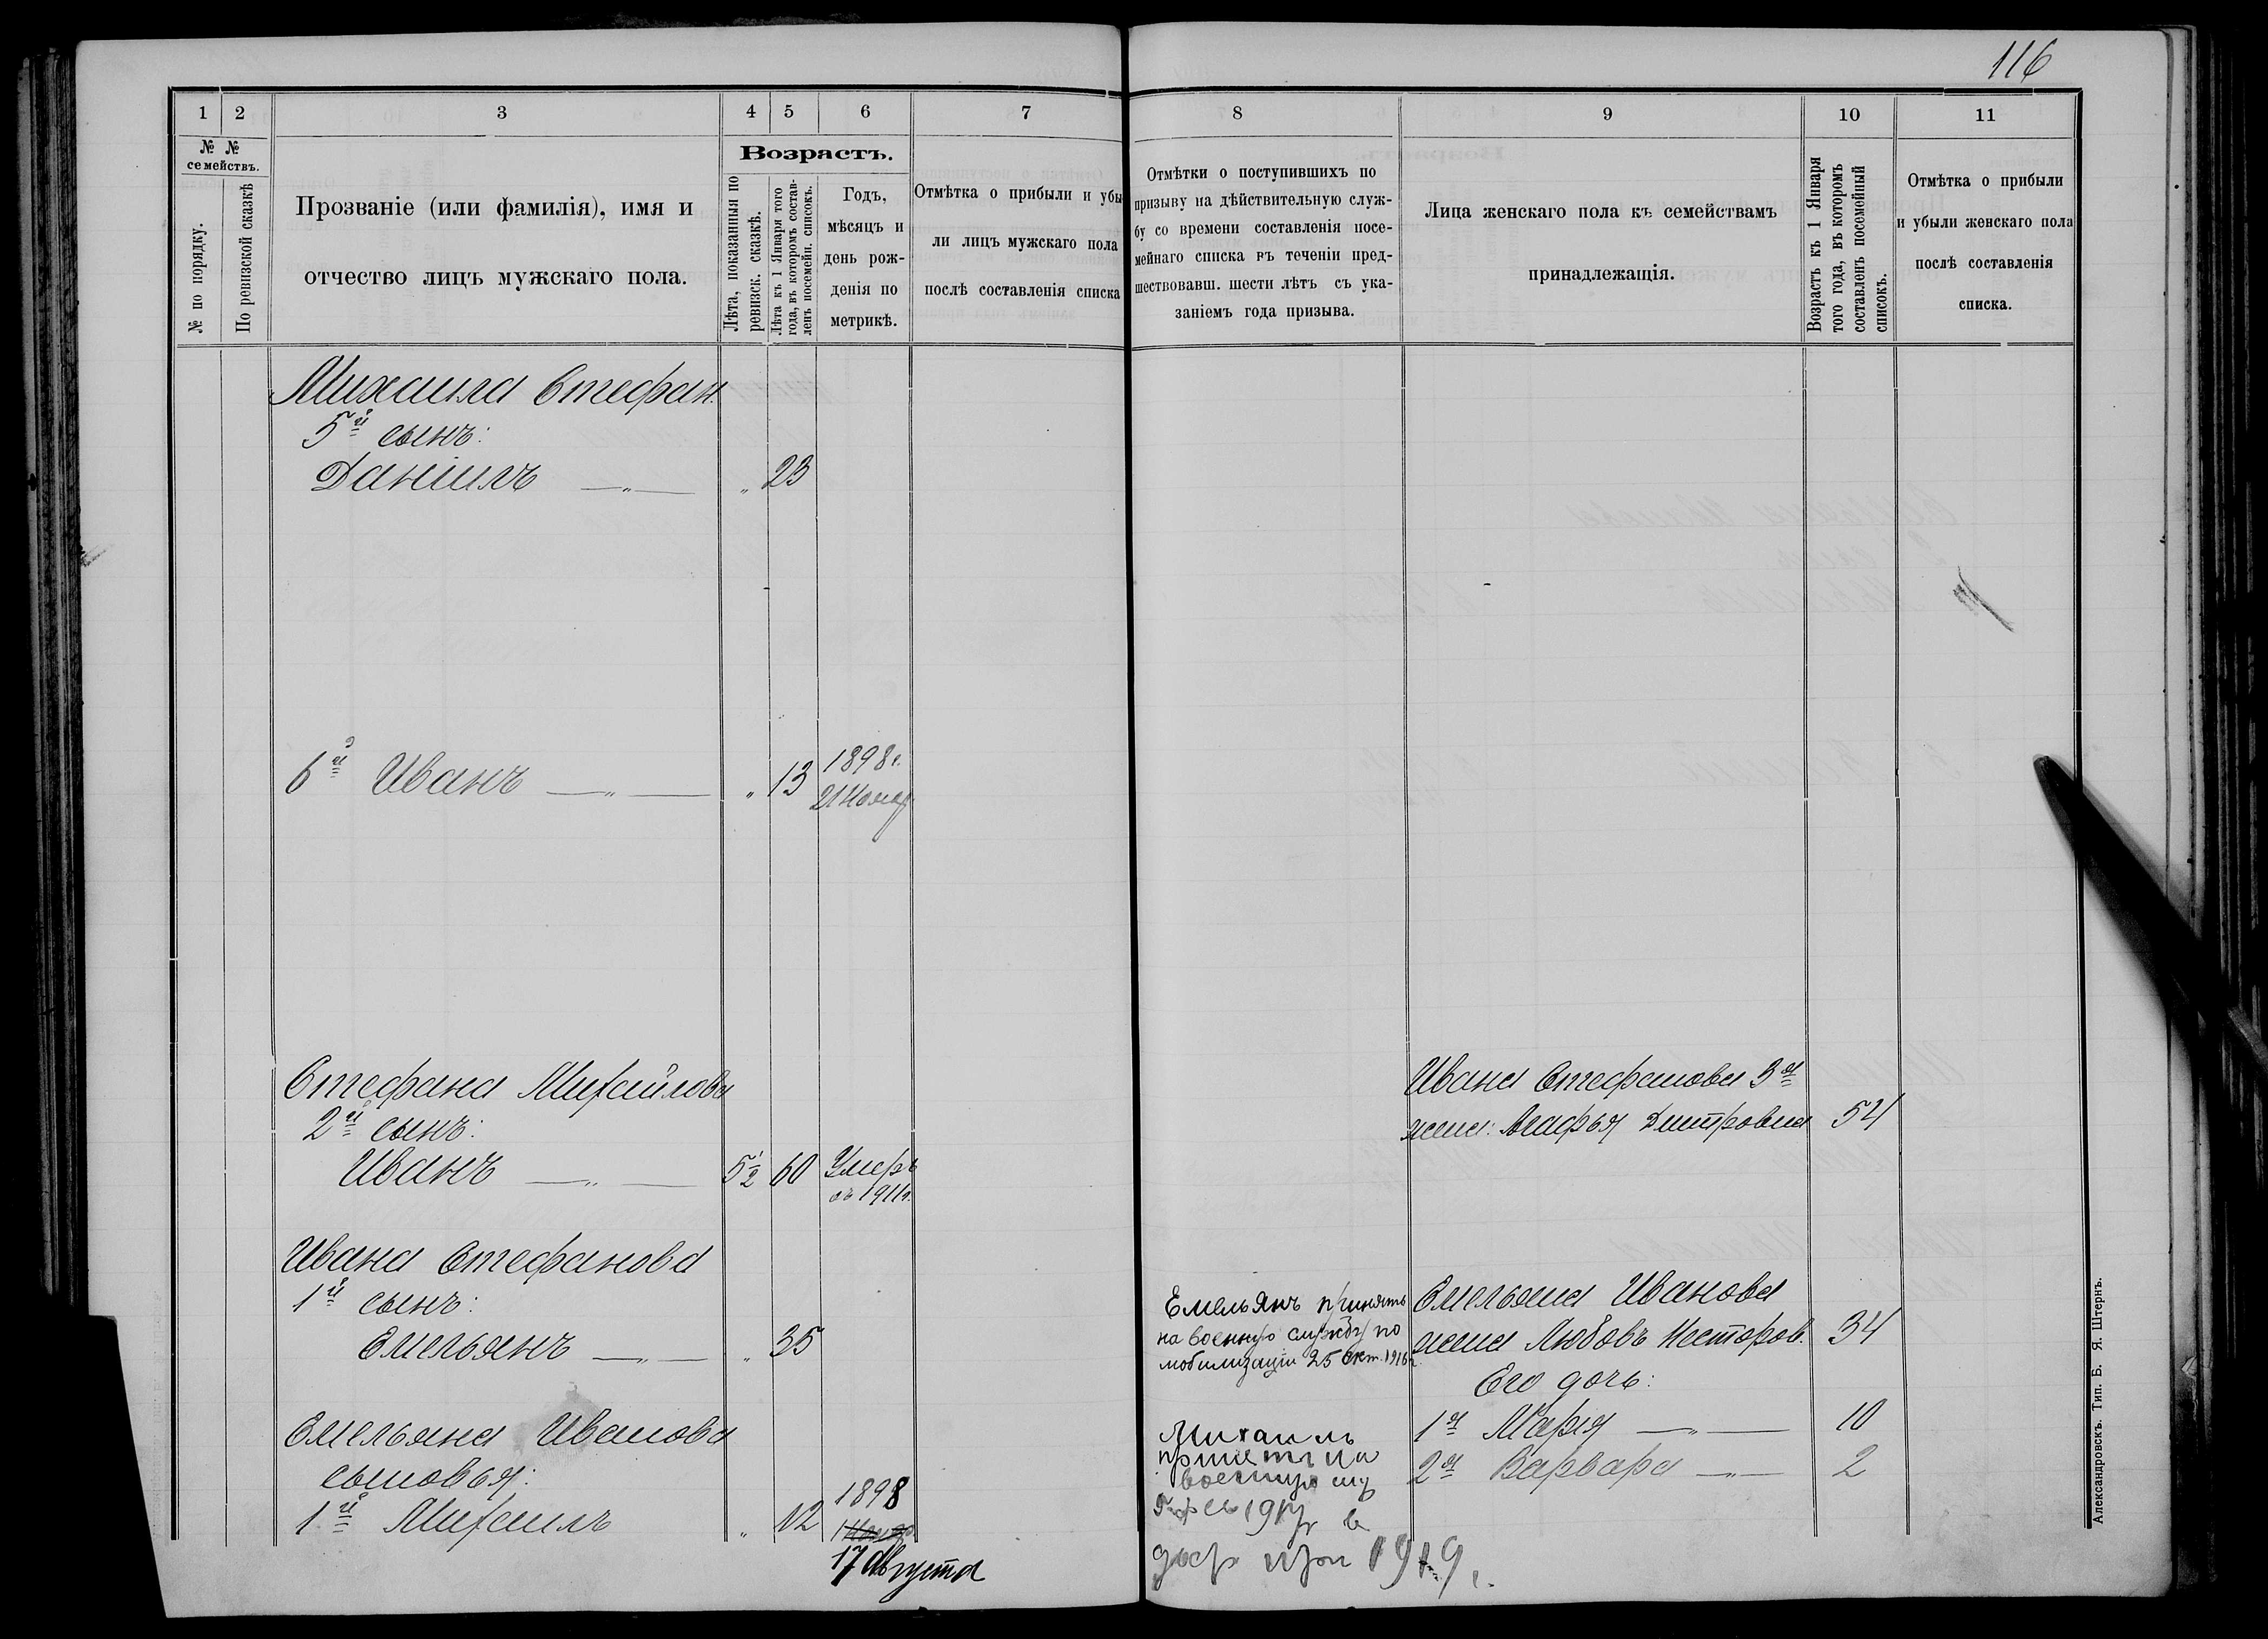 116
1
2
3
4
5
6
7
№ №
семействъ.
№ по порядку.
По ревизской сказкѣ
Прозваніе (или фамилія), имя и
отчество лицъ мужскаго пола.
Возрастъ.
Лѣта, показанныя по
ревизск. сказкѣ.
Лѣта къ 1 Января того
года, въ которомъ состав-
ленъ посемейн. списокъ.
Годъ,
мѣсяцъ и
день рож-
денія по
метрикѣ.
Отмѣтка о прибыли и убы
ли лицъ мужскаго пола
послѣ составленія списка
Михаила Стефан.
5й сынъ:
Даніилъ —„— „ 23
6й Иванъ —„— „ 13 1898 г.
21 Ноября
Стефана Михайлова
2й сынъ:
Иванъ —„— 5½ 60 Умеръ
въ 1911 г.
Ивана Стефанова
1й сынъ:
Емельянъ —„— „ 35
Емельяна Иванова
сыновья:
1й Михаилъ „ 12 1898
17 Августа
8
9
10
11
Отмѣтки о поступившихъ по
призыву на дѣйствительную служ-
бу со времени составленія посе-
мейнаго списка въ теченіи пред-
шествовавш. шести лѣтъ съ ука-
заніемъ года призыва.
Лица женскаго пола къ семействамъ
принадлежащія.
Возрастъ къ 1 Января
того года, въ которомъ
составленъ посемейный
списокъ.
Отмѣтка о прибыли
и убыли женскаго пола
послѣ составленія
списка.
Ивана Стефанова 3я
жена: Агафья Дмитровна 54
Емельянъ принятъ
на военную службу по
мобилизаціи 25 Окт. 1916 г.
Емельяна Иванова
жена Любовь Несторов. 34
Его дочь:
1я Марія —„— 10
2я Варвара —„— 2
Михаилъ
принятъ на
военную
1919
Александровскъ. Тип. Б. Я. Штернъ.